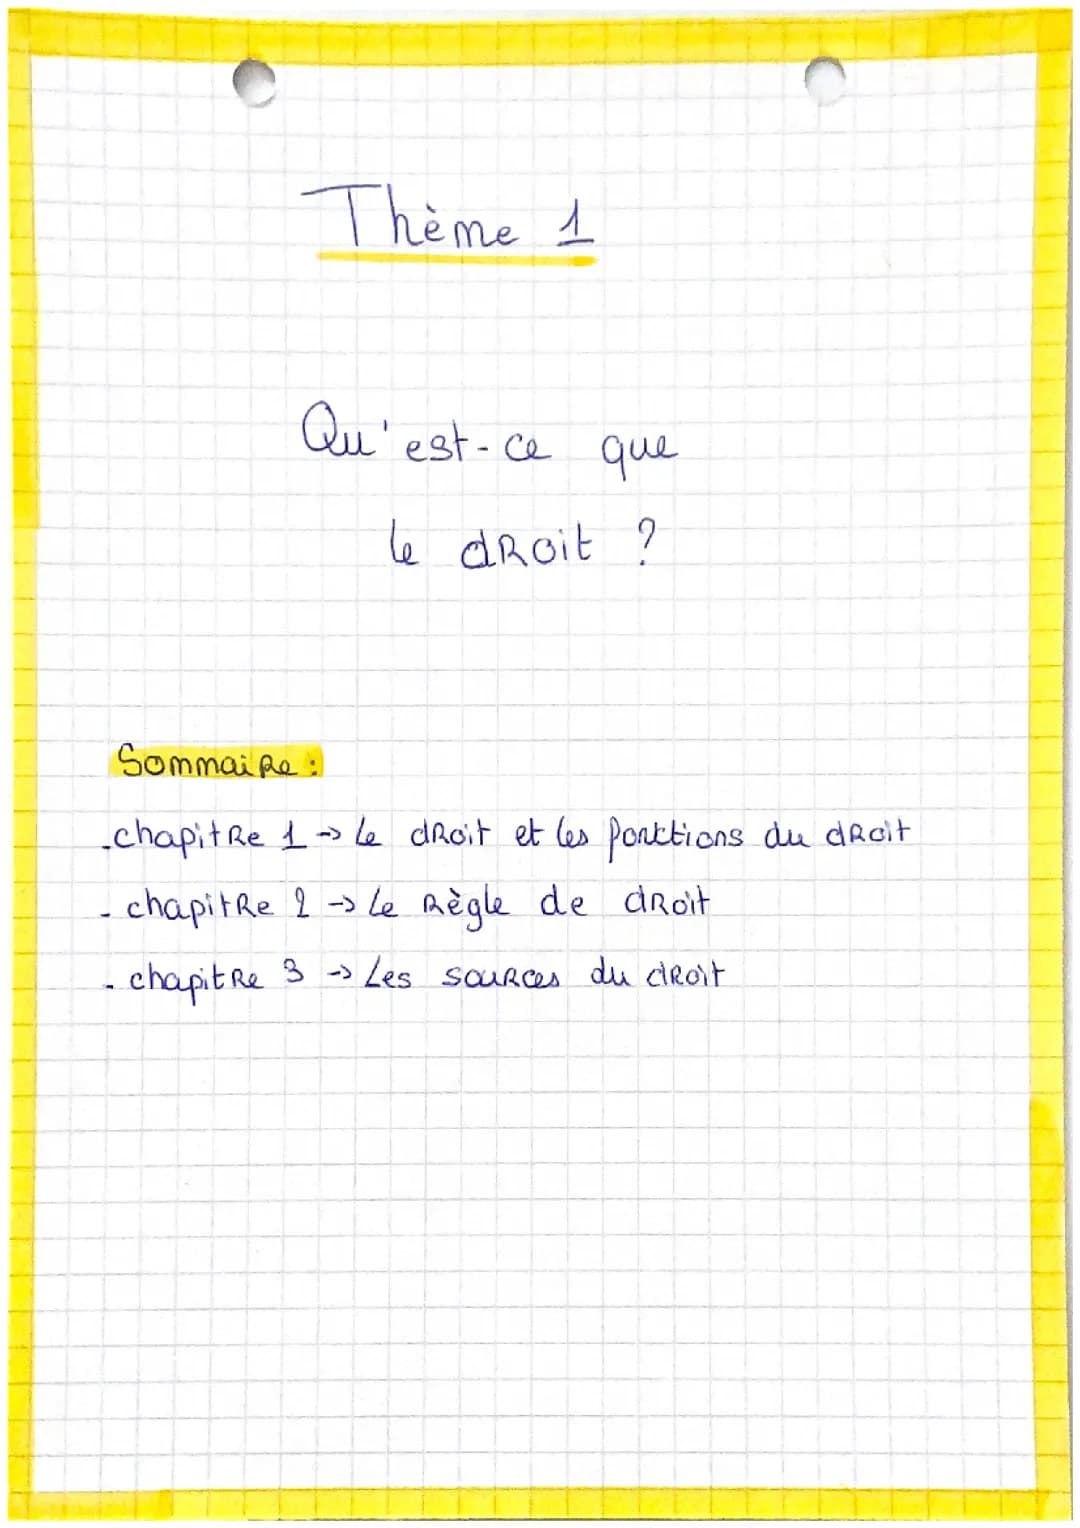 Thème 1
Qu'est-ce que
le droit ?
Sommaire :
- chapitre 1 → Le droit et les fonctions du droit
- chapitre 2 → Le règle de droit
- chapitre 3 → Les sources du droit